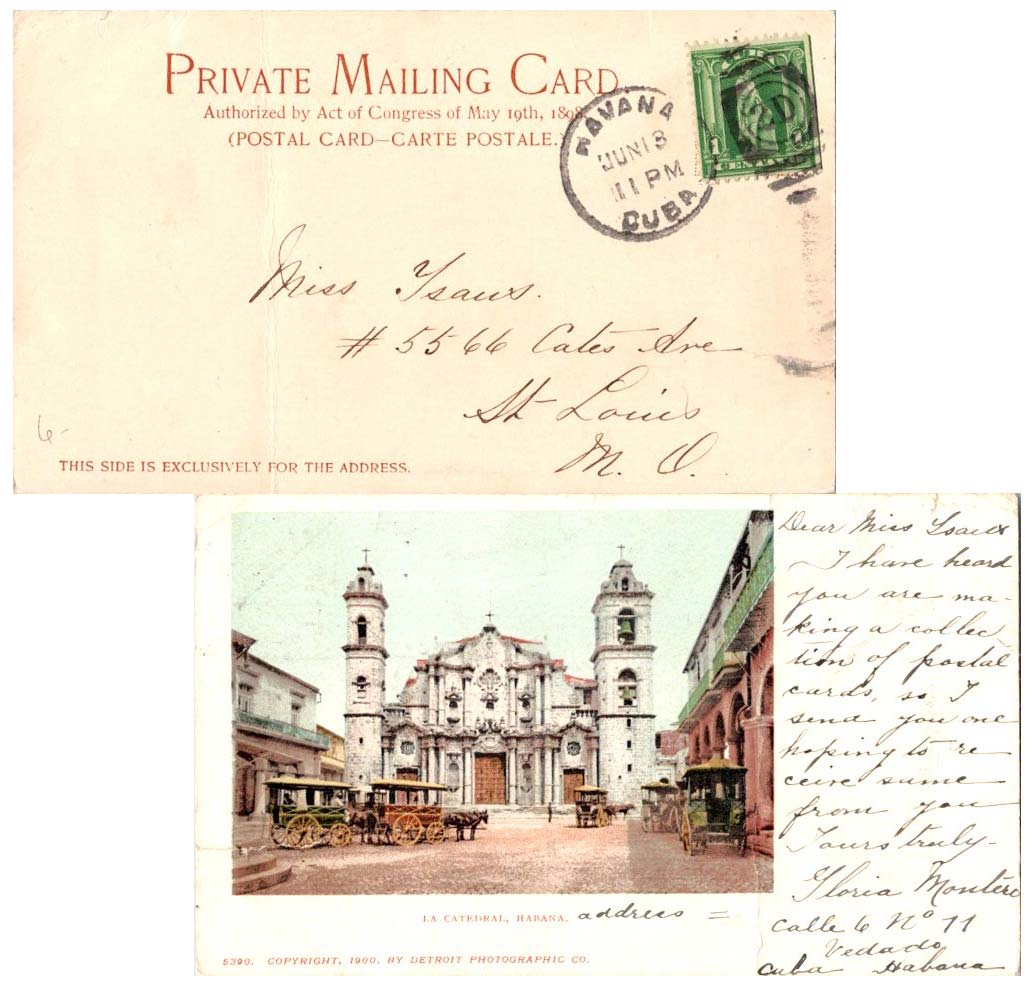 PRIVATE MAILING CARD
Authorized by Act of Congress of May 19th, 1898.
(POSTAL CARD—CARTE POSTALE.)
HAVANA
JUN 18
11 PM
CUBA
1
Miss
# 5566 Cates Ave
St Louis
M. O.
6-
THIS SIDE IS EXCLUSIVELY FOR THE ADDRESS.
Dear Miss
I have heard
you are ma-
king a collec
tion of postal
cards, so I
send you one
hoping to re
ceive same
from you
Yours truly-
Gloria Montero
LA CATEDRAL, HABANA.
address =
calle 6 Nº 11
Vedado
Cuba Habana
5390. COPYRIGHT, 1900, BY DETROIT PHOTOGRAPHIC CO.